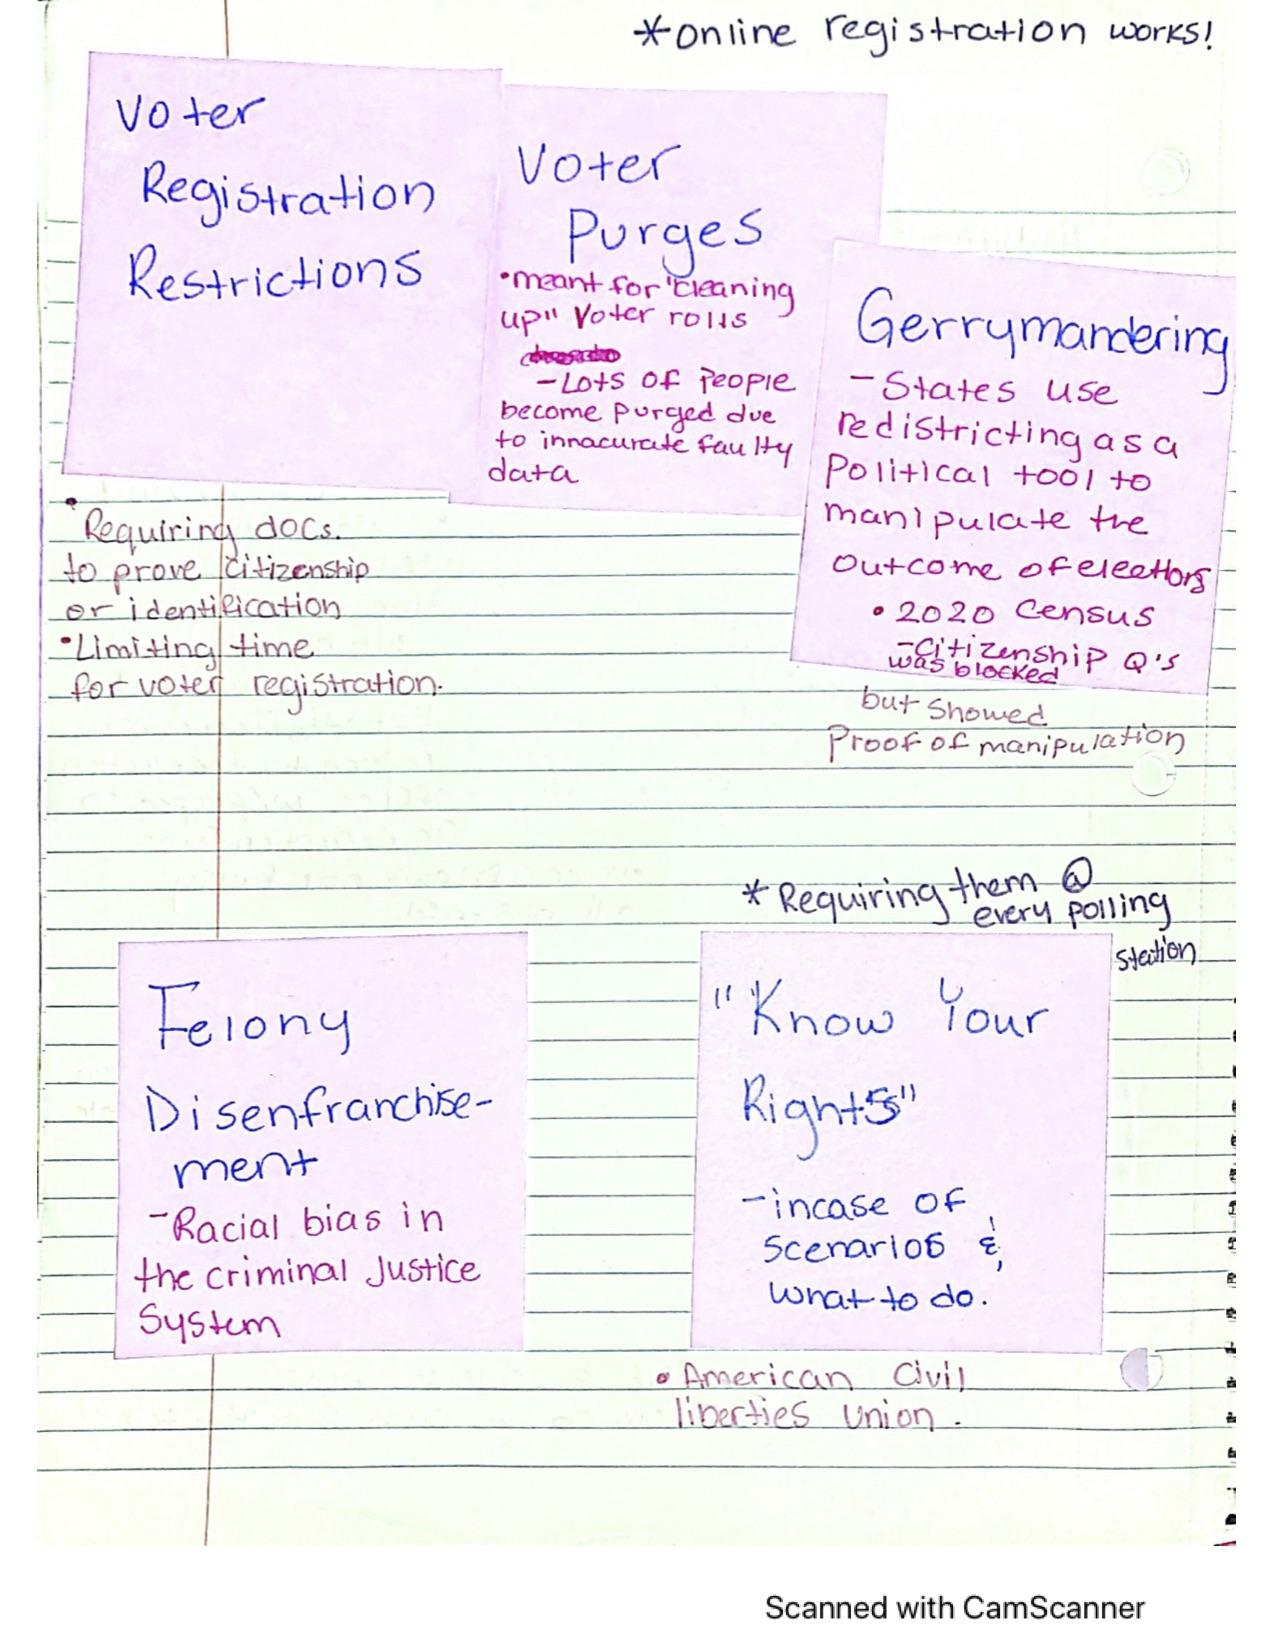 *online registration works!
Voter
Registration
Restrictions
• Requiring docs.
to prove citizenship
or identification
• Limiting time
for voter registration.
Voter
Purges
• meant for "cleaning
up" voter rolls
- Lots of people
become purged due
to innacurate faulty
data
Gerrymandering
- States use
redistricting as a
Political tool to
manipulate the
outcome of
• 2020 Census
- Citizenship Q's
was blocked
but showed
Proof of manipulation
Felony
Disenfranchise-
ment
- Racial bias in
the criminal Justice
System
* Requiring them @
every polling
station
"Know Your
Rights"
- incase of
scenarios &
what to do.
• American Civil
liberties Union.
Scanned with CamScanner